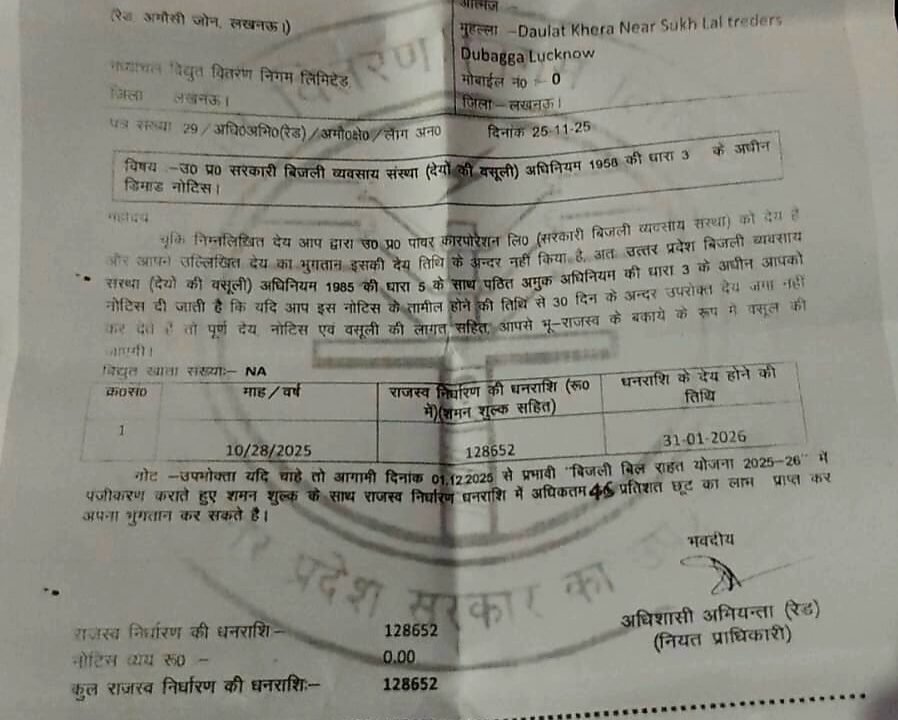 (रेड अमौसी जोन, लखनऊ।)
आत्मज
मुहल्ला –Daulat Khera Near Sukh Lal treders
Dubagga Lucknow
मध्यांचल विद्युत वितरण निगम लिमिटेड
मोबाईल नं0 :– 0
जिला लखनऊ।
जिला – लखनऊ।
पत्र संख्या 29 / अधि0अभि0(रेड) / अमौ0क्षे0 / लाग अन0 दिनांक 25-11-25
विषय –उ0 प्र0 सरकारी बिजली व्यवसाय संस्था (देयों की वसूली) अधिनियम 1958 की धारा 3 के अधीन
डिमाड नोटिस।
महोदय
चूंकि निम्नलिखित देय आप द्वारा उ0 प्र0 पावर कारपोरेशन लि0 (सरकारी बिजली व्यवसाय संस्था) को देय है
और आपने उल्लिखित देय का भुगतान इसकी देय तिथि के अन्दर नहीं किया है, अतः उत्तर प्रदेश बिजली व्यवसाय
संस्था (देयों की वसूली) अधिनियम 1985 की धारा 5 के साथ पठित अमुक अधिनियम की धारा 3 के अधीन आपको
नोटिस दी जाती है कि यदि आप इस नोटिस के तामील होने की तिथि से 30 दिन के अन्दर उपरोक्त देय जमा नहीं
कर देते है तो पूर्ण देय नोटिस एवं वसूली की लागत सहित, आपसे भू–राजस्व के बकाये के रूप में वसूल की
जाएगी।
विद्युत खाता संख्याः– NA
क्र0सं0 माह / वर्ष राजस्व निर्धारण की धनराशि (रू0 धनराशि के देय होने की
में)(शमन शुल्क सहित) तिथि
1 10/28/2025 128652 31-01-2026
नोट –उपभोक्ता यदि चाहे तो आगामी दिनांक 01.12.2025 से प्रभावी "बिजली बिल राहत योजना 2025–26" में
पंजीकरण कराते हुए शमन शुल्क के साथ राजस्व निर्धारण धनराशि में अधिकतम 45 प्रतिशत छूट का लाभ प्राप्त कर
अपना भुगतान कर सकते है।
भवदीय
अधिशासी अभियन्ता (रेड)
(नियत प्राधिकारी)
राजस्व निर्धारण की धनराशि– 128652
नोटिस व्यय रू0 – 0.00
कुल राजस्व निर्धारण की धनराशिः– 128652
वितरण
प्रदेश सरकार का